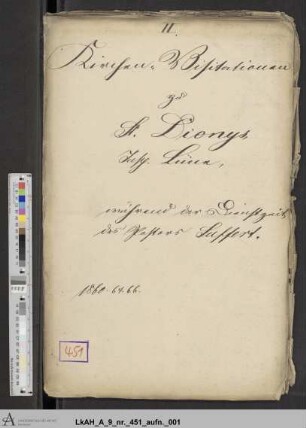 II.
Kirchen-Visitationen
zu
St. Dionys
Insp. Lüne,
während der Dienstzeit
des Pastors
1860. 64. 66.
451
LkAH_A_9_nr._451_aufn._001